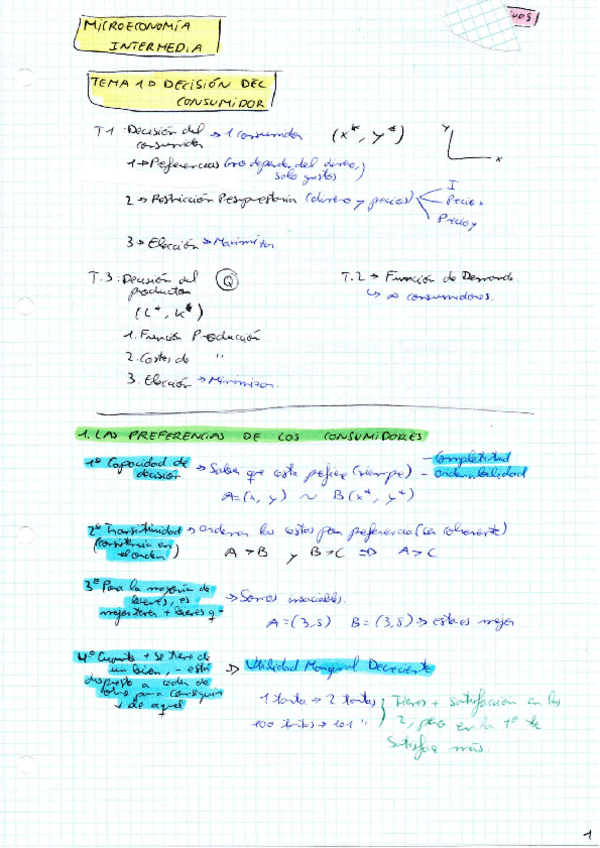 MICROECONOMÍA
INTERMEDIA
TEMA 1: DECISIÓN DEL
CONSUMIDOR
T.1: Decisión del consumidor → 1 consumidor (x*, y*) y x
1 → Preferencias (no depende del dinero, solo gustos)
2 → Restricción Presupuestaria (dinero y precios) I
Precio x
Precio y
3 → Elección → Maximizar
T.3: Decisión del productor Q
(L*, K*)
T.2 → Función de Demanda
↳ ∞ consumidores.
1. Función Producción
2. Costes de "
3. Elección → Minimizar.
1. LAS PREFERENCIAS DE LOS CONSUMIDORES
1º Capacidad de decisión → Saber que cesta prefiere (siempre) - completitud
- ordenabilidad
A=(x, y) ~ B(x*, y*)
2º Transitividad → Ordenan las cestas por preferencia (ser coherente)
(consistencia en el orden) A > B y B > C ⇒ A > C
3º Para la mayoría de bienes, es mejor tener + bienes q - → Somos insaciables.
A=(3,5) B=(3,8) → esta es mejor
4º Cuanto + se tiene de un bien, - está dispuesto a ceder de otro para conseguir + de aquel
→ Utilidad Marginal Decreciente
1 tarta → 2 tartas
100 tartas → 101 "
Tienes + satisfacción en las 2, pero en la 1ª te satisface más.
1